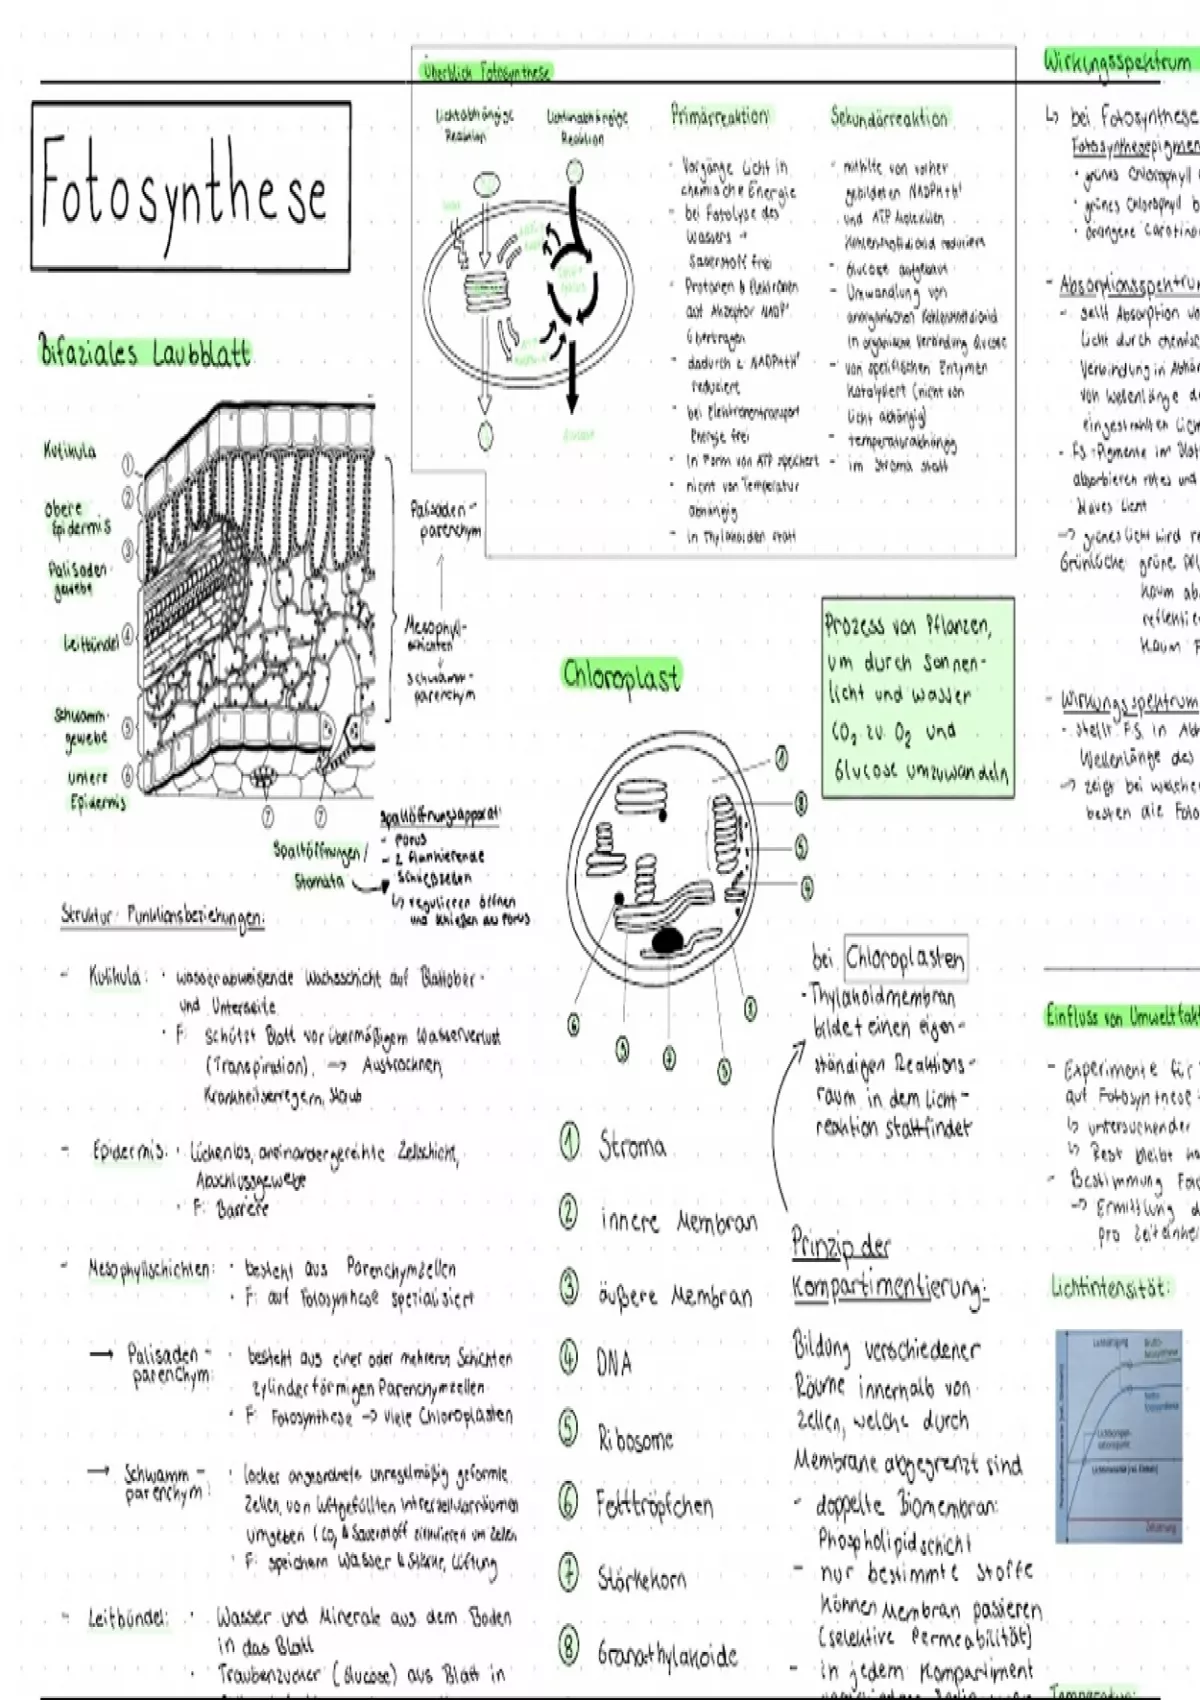 Fotosynthese
Überblick Fotosynthese
Lichtabhängige
Reaktion
Lichtunabhängige
Reaktion
Glucose
Primärreaktion
- Vorgänge Licht in
chemische Energie
- bei Fotolyse des
Wassers →
Sauerstoff frei
- Protonen & Elektronen
auf Akzeptor NADP⁺
übertragen
- dadurch z NADPH+H⁺
reduziert
- bei Elektronentransport
Energie frei
- in Form von ATP speichert
- nicht von Temperatur
abhängig
- in Thylakoiden statt
Sekundärreaktion
- mithilfe von vorher
gebildeten NADPH+H⁺
und ATP Molekülen
Kohlenstoffdioxid reduziert
- Glucose aufgebaut
- Umwandlung von
anorganischen Kohlenstoffdioxid
in organische Verbindung Glucose
- von spezifischen Enzymen
katalysiert (nicht von
Licht abhängig)
- temperaturabhängig
- im Stroma statt
Bifaziales Laubblatt
Kutikula
obere
Epidermis
Palisaden-
gewebe
Leitbündel
Schwamm-
gewebe
untere
Epidermis
1
2
3
4
5
6
7
7
Palisaden-
parenchym
↑
Mesophyll-
schichten
↓
Schwamm-
parenchym
Spaltöffnungen/
Stomata
Spaltöffnungsapparat:
- Porus
- 2 flankierende
Schließzellen
↳ regulieren öffnen
und schließen des Porus
Struktur-Funktionsbeziehungen:
- Kutikula: • wasserabweisende Wachsschicht auf Blattober-
und Unterseite
• F: schützt Blatt vor übermäßigem Wasserverlust
(Transpiration), → Austrocknen,
Krankheitserregern, Staub
- Epidermis: • Lückenlos, aneinandergereihte Zellschicht,
Abschlussgewebe
• F: Barriere
- Mesophyllschichten: • besteht aus Parenchymzellen
• F: auf Fotosynthese spezialisiert
→ Palisaden-
parenchym:
• besteht aus einer oder mehreren Schichten
zylinderförmigen Parenchymzellen
• F: Fotosynthese → viele Chloroplasten
→ Schwamm-
parenchym:
• locker angeordnete unregelmäßig geformte
Zellen, von luftgefüllten Interzellularräumen
umgeben (CO₂ & Sauerstoff zirkulieren um Zellen
• F: speichern Wasser & Stärke, Lüftung
- Leitbündel: • Wasser und Minerale aus dem Boden
in das Blatt
• Traubenzucker (Glucose) aus Blatt in
Chloroplast
1
8
5
4
1 Stroma
2 innere Membran
3 äußere Membran
4 DNA
5 Ribosome
6 Fetttröpfchen
7 Stärkekorn
8 Granathylakoide
Prozess von Pflanzen,
um durch Sonnen-
licht und Wasser
CO₂ zu O₂ und
Glucose umzuwandeln
bei Chloroplasten
- Thylakoidmembran
bildet einen eigen-
ständigen Reaktions-
raum in dem Licht-
reaktion stattfindet
Prinzip der
Kompartimentierung:
Bildung verschiedener
Räume innerhalb von
Zellen, welche durch
Membrane abgegrenzt sind
- doppelte Biomembran:
Phospholipidschicht
- nur bestimmte Stoffe
können Membran passieren
(selektive Permeabilität)
- in jedem Kompartiment
Wirkungsspektrum
↳ bei Fotosynthese
Fotosynthesepigmen
• grünes Chlorophyll
• grünes Chlorophyll b
• orangene Carotino
- Absorptionsspektrum
- stellt Absorption vo
Licht durch chemisc
Verbindung in Abhän
von Wellenlänge de
eingestrahlten Lich
- FS-Pigmente im Blat
absorbieren rotes und
blaues Licht
→ grünes Licht wird re
Grünlücke: grüne
kaum ab
reflektie
kaum F
- Wirkungsspektrum
- stellt FS in Abh
Wellenlänge des
→ zeigt bei welche
besten die Foto
Einfluss von Umweltfakt
- Experimente für
auf Fotosynthese
↳ untersuchender
↳ Rest bleibt
- Bestimmung Foto
→ Ermittlung d
pro Zeiteinhei
Lichtintensität:
Temperatur: